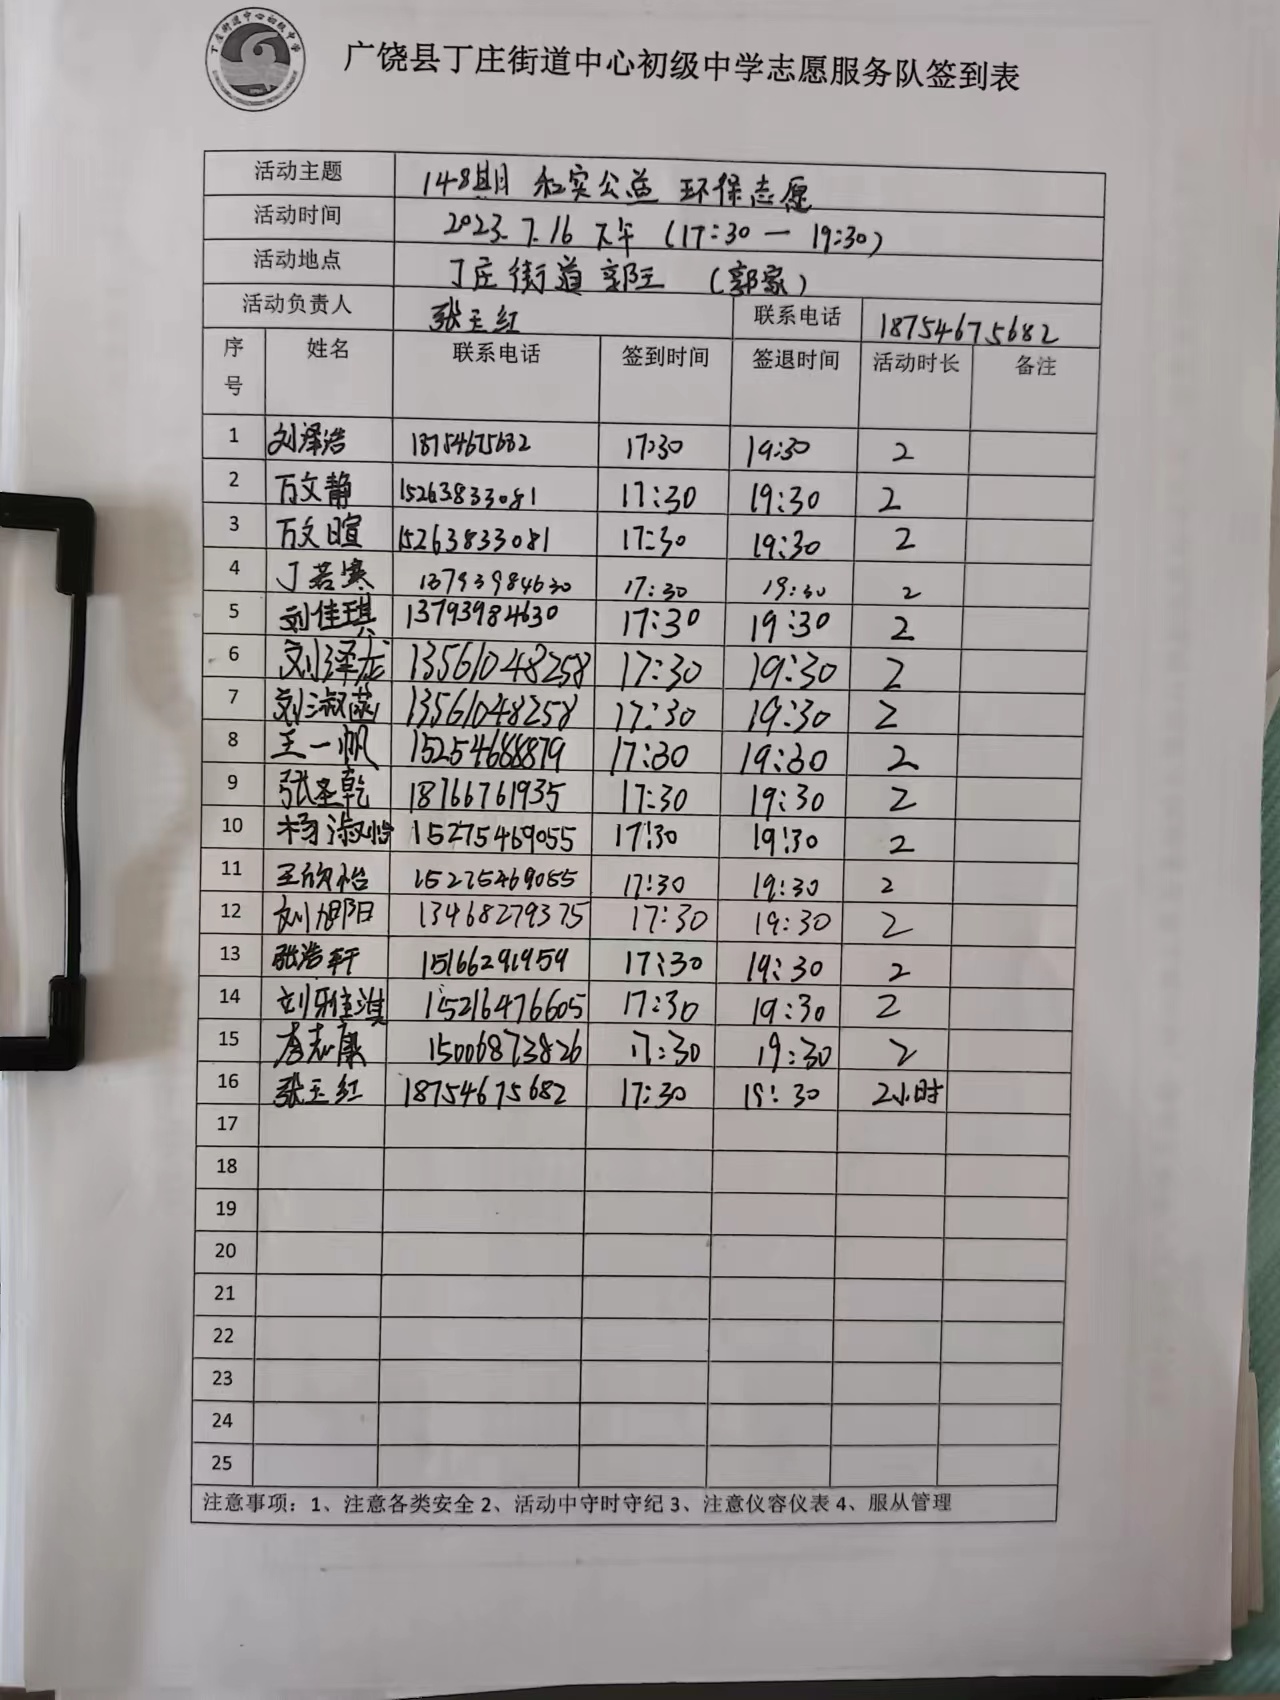 丁庄街道中心初级中学
广饶县丁庄街道中心初级中学志愿服务队签到表
活动主题 148期 和实公益 环保志愿
活动时间 2023.7.16 下午 (17:30 — 19:30)
活动地点 丁庄街道 郭王 (郭家)
活动负责人 张玉红 联系电话 18754675682
序号 姓名 联系电话 签到时间 签退时间 活动时长 备注
1 刘泽浩 18754675682 17:30 19:30 2
2 万文静 15263833081 17:30 19:30 2
3 万文暄 15263833081 17:30 19:30 2
4 丁若寒 13793984630 17:30 19:30 2
5 刘佳琪 13793984630 17:30 19:30 2
6 刘泽龙 13561048258 17:30 19:30 2
7 刘淑菡 13561048258 17:30 19:30 2
8 王一帆 15254688879 17:30 19:30 2
9 张圣乾 18766761935 17:30 19:30 2
10 杨淑怡 15275469055 17:30 19:30 2
11 王欣怡 15275469055 17:30 19:30 2
12 刘旭阳 13468279375 17:30 19:30 2
13 张浩轩 15166291959 17:30 19:30 2
14 刘雅淇 15216476605 17:30 19:30 2
15 李志康 15006873826 17:30 19:30 2
16 张玉红 18754675682 17:30 19:30 2小时
17
18
19
20
21
22
23
24
25
注意事项：1、注意各类安全 2、活动中守时守纪 3、注意仪容仪表 4、服从管理